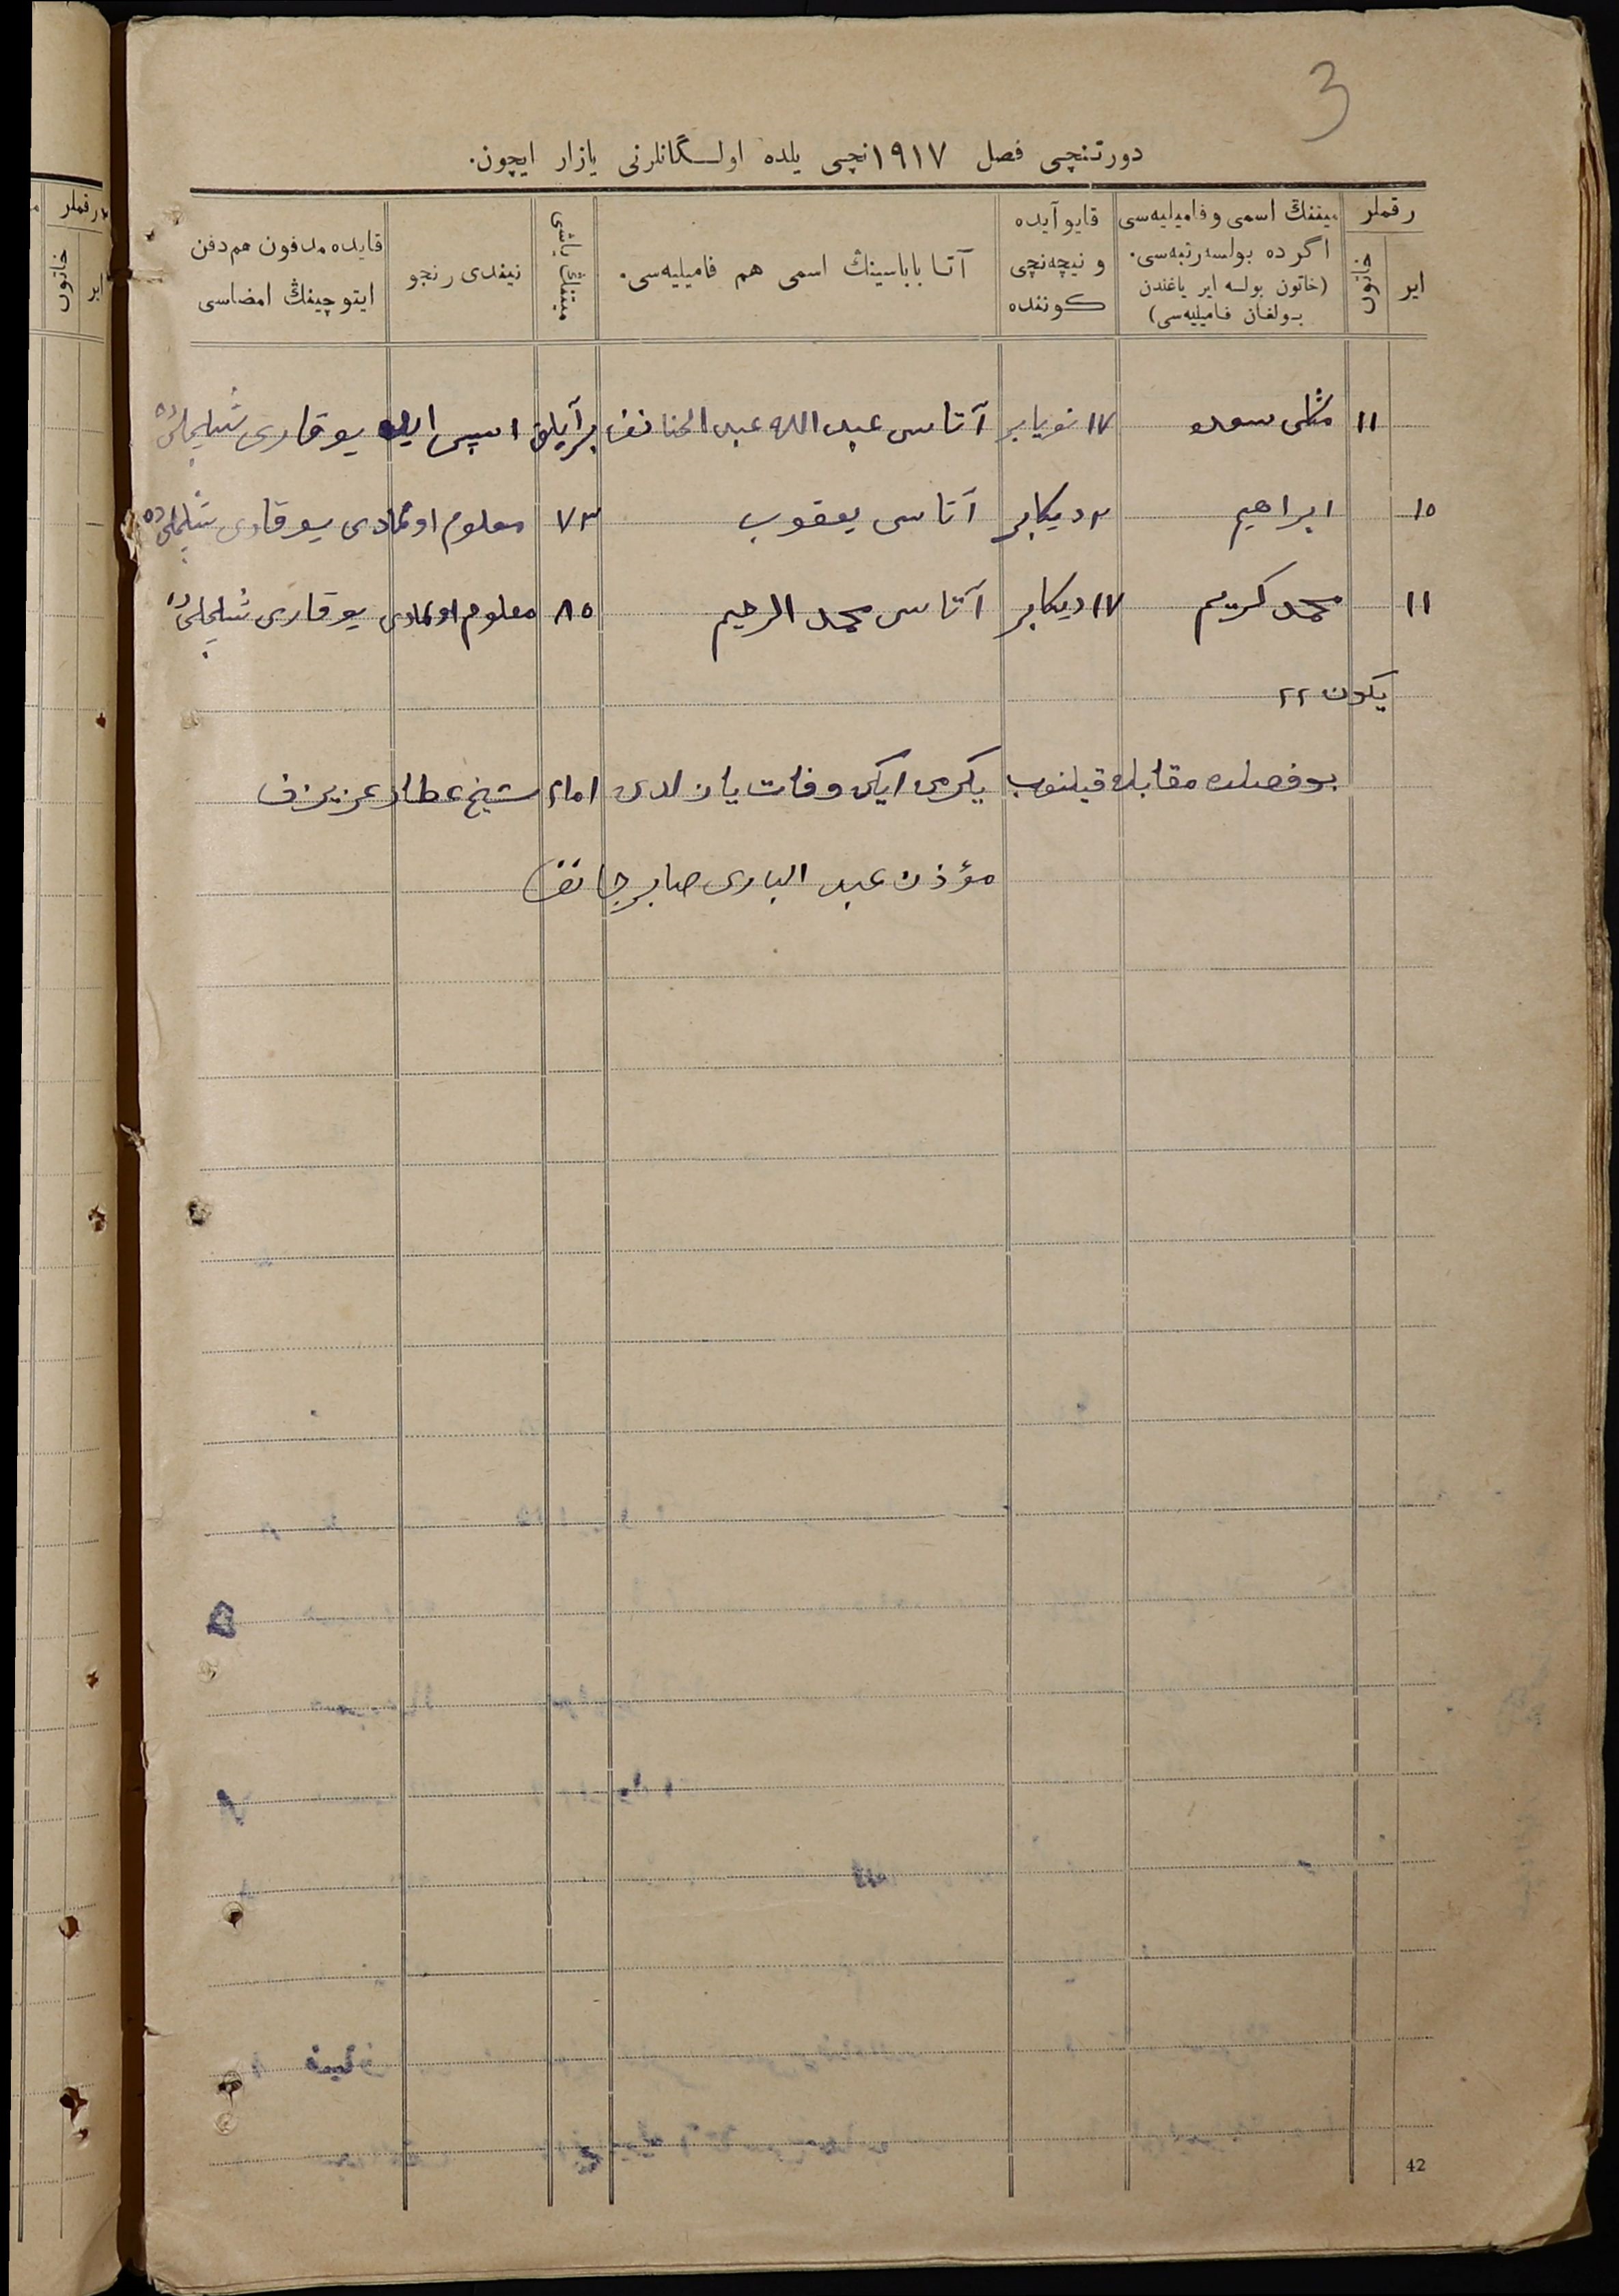 3
دورتنچی فصل ١٩١٧نچی یلده اولـگانلرنی یازار ایچون.
رقملر
ایر
خاتون
میتنڭ اسمی و فامیلیه‌سی
اگرده بولسه رتبه‌سی.
(خاتون بولسه ایر یاغندن
بولغان فامیلیه‌سی)
قایو آیده
و نیچه‌نچی
کوننده
آتا باباسینڭ اسمی هم فامیلیه‌سی.
میتنڭ یاشی
نیندی رنجو
قایده مدفون هم دفن
ایتوچینڭ امضاسی
١١ ١٧ نویابر آتاسی عبد الله عبد الحنانف بر آیلق یوقاری
١٥ ابراهیم ٢ دیکابر آتاسی یعقوب ٧٣ معلوم اولمادی یوقاری
١١ محمد کریم ١٧ دیکابر آتاسی محمد الرحیم ٨٥ معلوم اولمادی یوقاری
یکون ٢٢
بو فصلده مقابله قیلنوب یکرمی ایکی وفات یازلدی امام شیخ عطار عزیزف
مؤذن عبد الباری صابرجانف
42
رقملر
ایر
خاتون